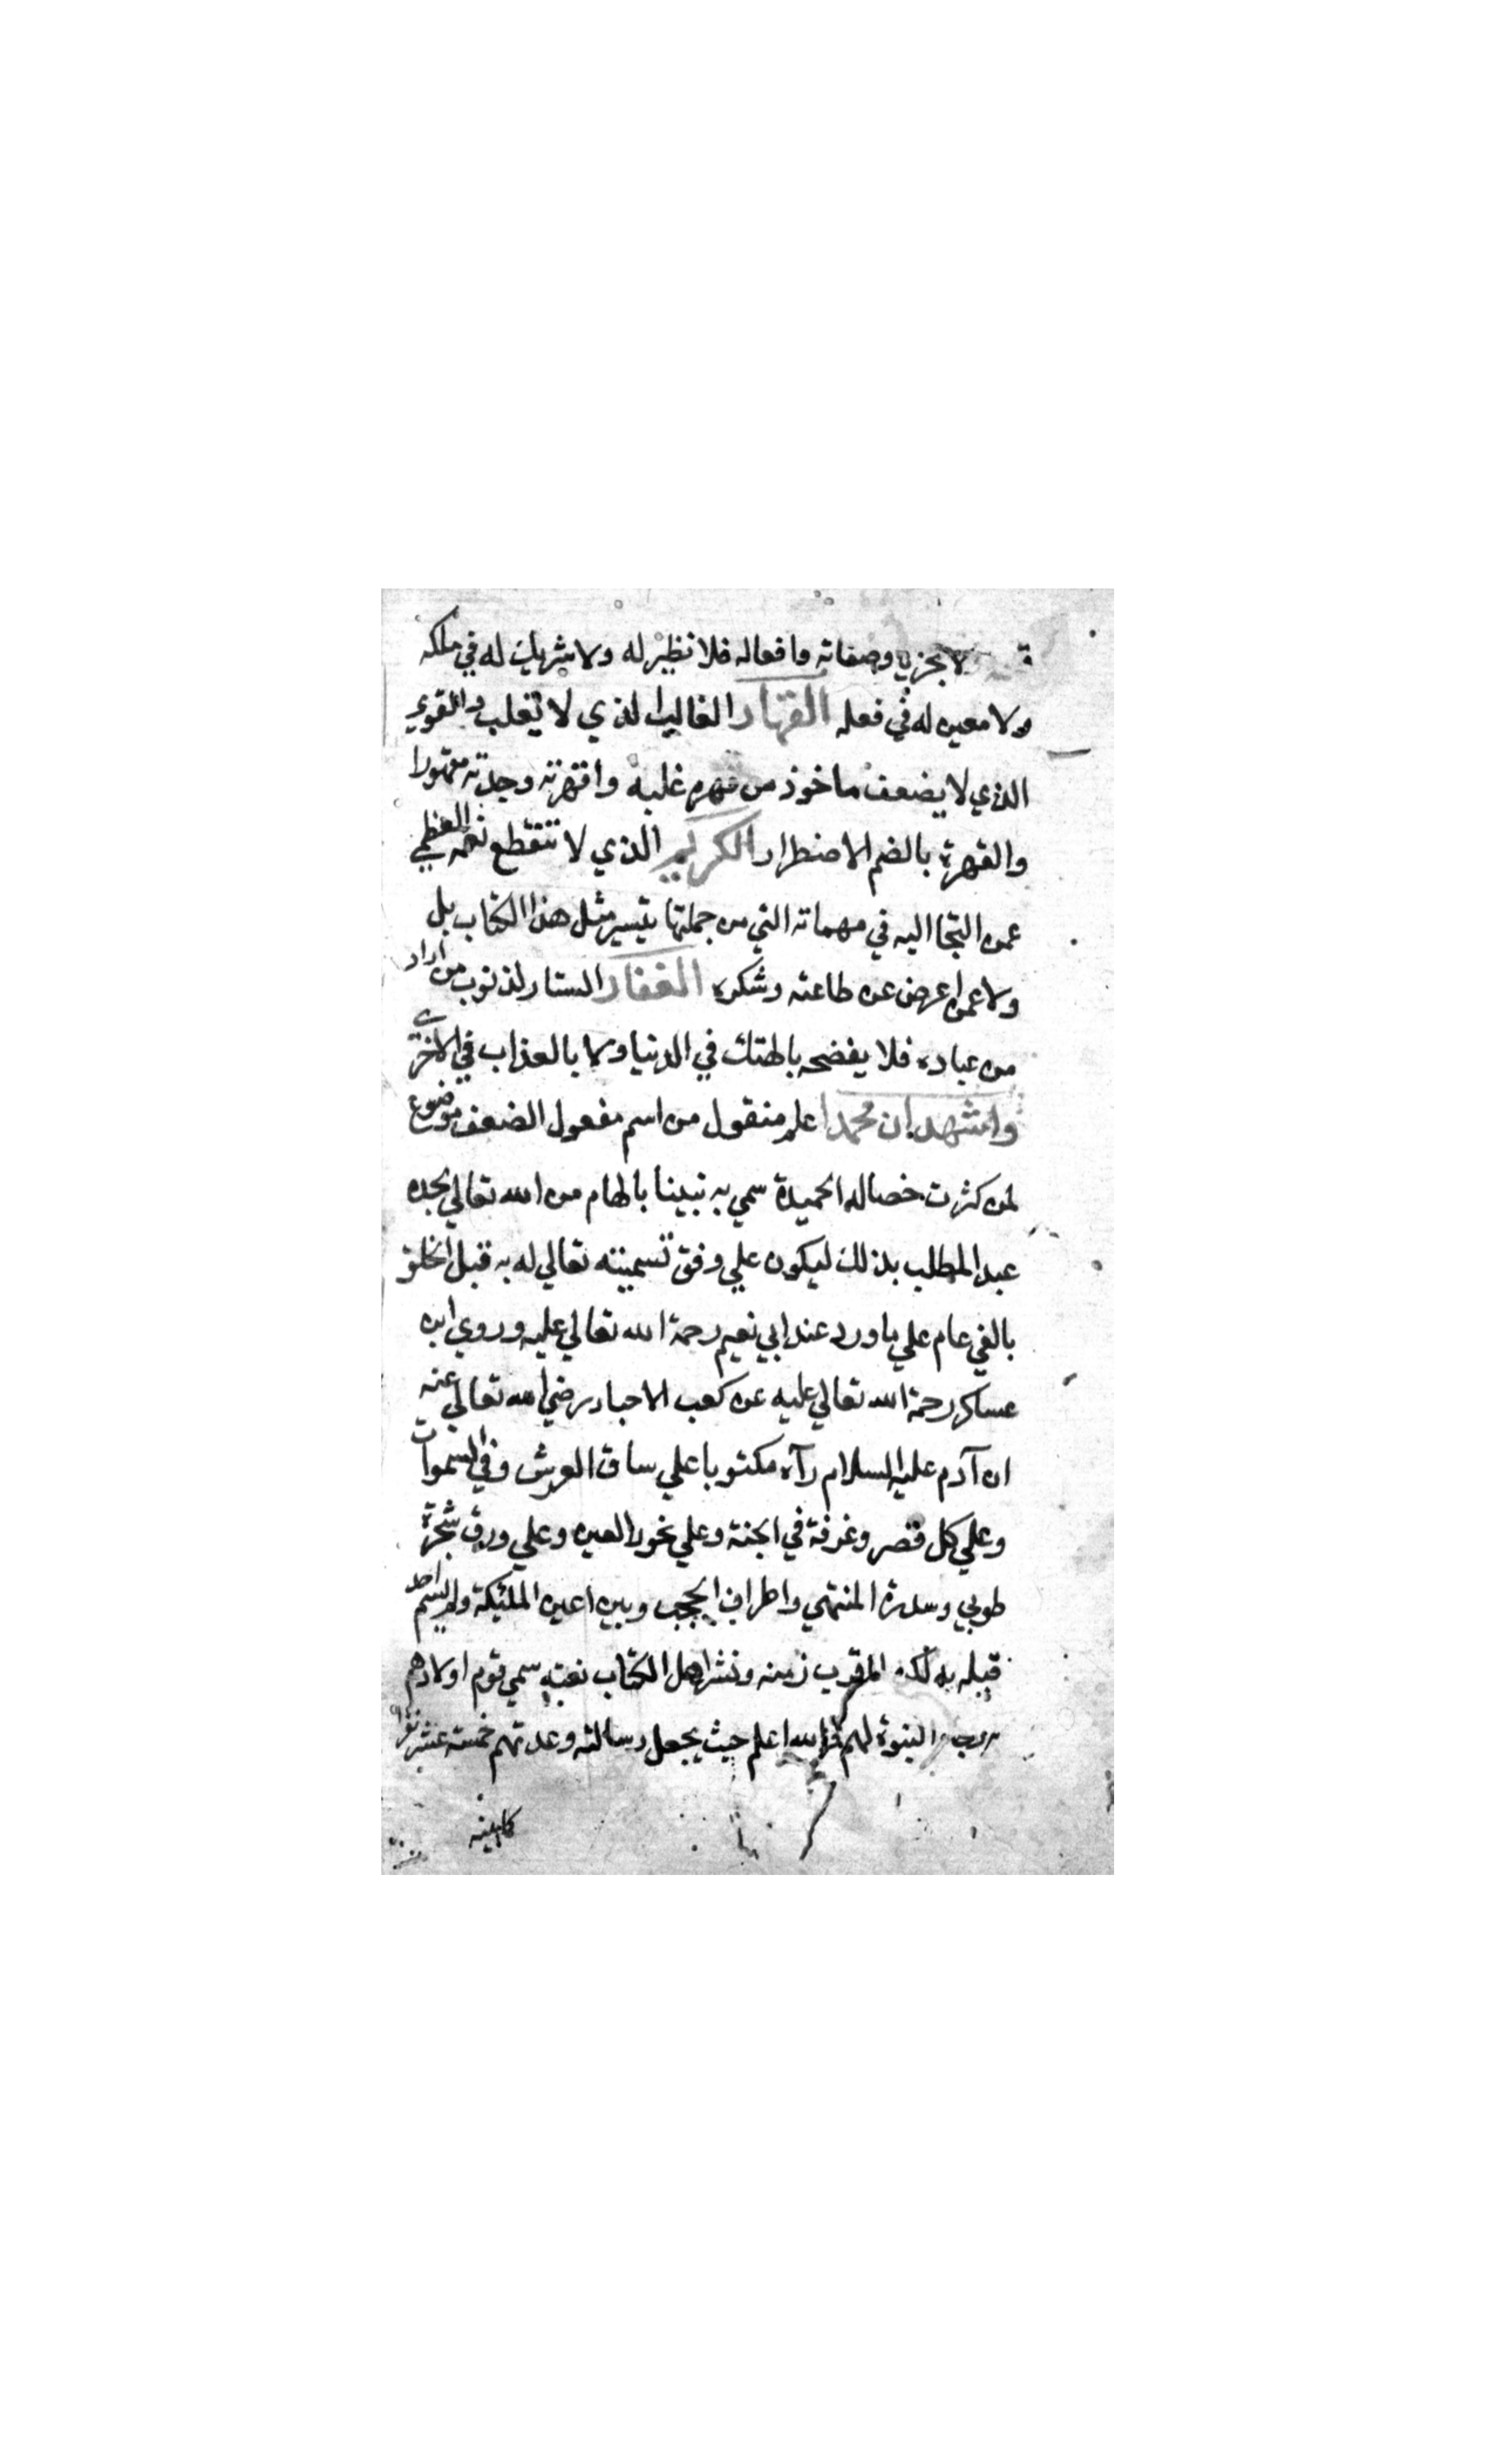 ولا بجزيه وصفاته وافعاله فلا نظير له ولا شريك له في ملكه
ولا معين له في فعله القهار الغالب الذي لا يغلب والقوي
الذي لا يضعف ماخوذ من قهره غلبه واقتهرته وجدته مقهورا
والقهرة بالضم الاضطرار الكريم الذي لا تنقطع نعمه العظمي
عمن التجا اليه في مهماته التي من جملتها تيسير مثل هذا الكتاب بل
ولا عمن اعرض عن طاعته وشكره الغفار الستار لذنوب من اراد
من عباده فلا يفضحه بالهتك في الدنيا ولا بالعذاب في الاخري
واشهد ان محمدا علم منقول من اسم مفعول الضعف موضوع
لمن كثرت خصاله الحميدة سمي به نبينا بالهام من الله تعالي لجده
عبد المطلب بذلك ليكون علي وفق تسميته تعالي له به قبل الخلق
بالفي عام علي ما ورد عند ابي نعيم رحمة الله تعالي عليه وروي ابن
عساكر رحمة الله تعالي عليه عن كعب الاحبار رضي الله تعالي عنه
ان آدم عليه السلام رآه مكتوبا علي ساق العرش وفي السموات
وعلي كل قصر وغرفة في الجنة وعلي نحور العين وعلي ورق شجرة
طوبي وسدرة المنتهي واطراف الحجب وبين اعين المليكة ولم يسم احد
قبله به لكن لما قرب زمنه ونشر اهل الكتاب نعته سمي قوم اولادهم
النبوة لهم والله اعلم حيث يجعل رسالته وعدتهم خمسة عشر
كما بينه